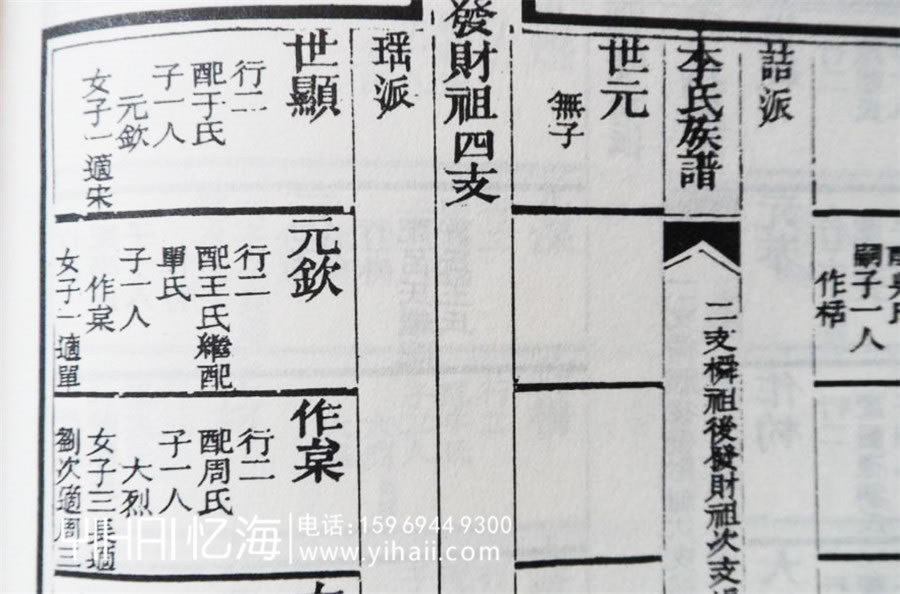 嗣子一人
詰派
李氏族譜
二支橓祖後發財祖次支
世元
無子
發財祖四支
瑶派
世顯
行二
配于氏
子一人
元欽
女子一適宋
元欽
行二
配王氏繼配
單氏
子一人
作
女子一適單
作
行二
配周氏
子一人
大烈
女子三長適
劉次適周三
YIHAI 忆海
电话: 15969449300
www.yihaii.com